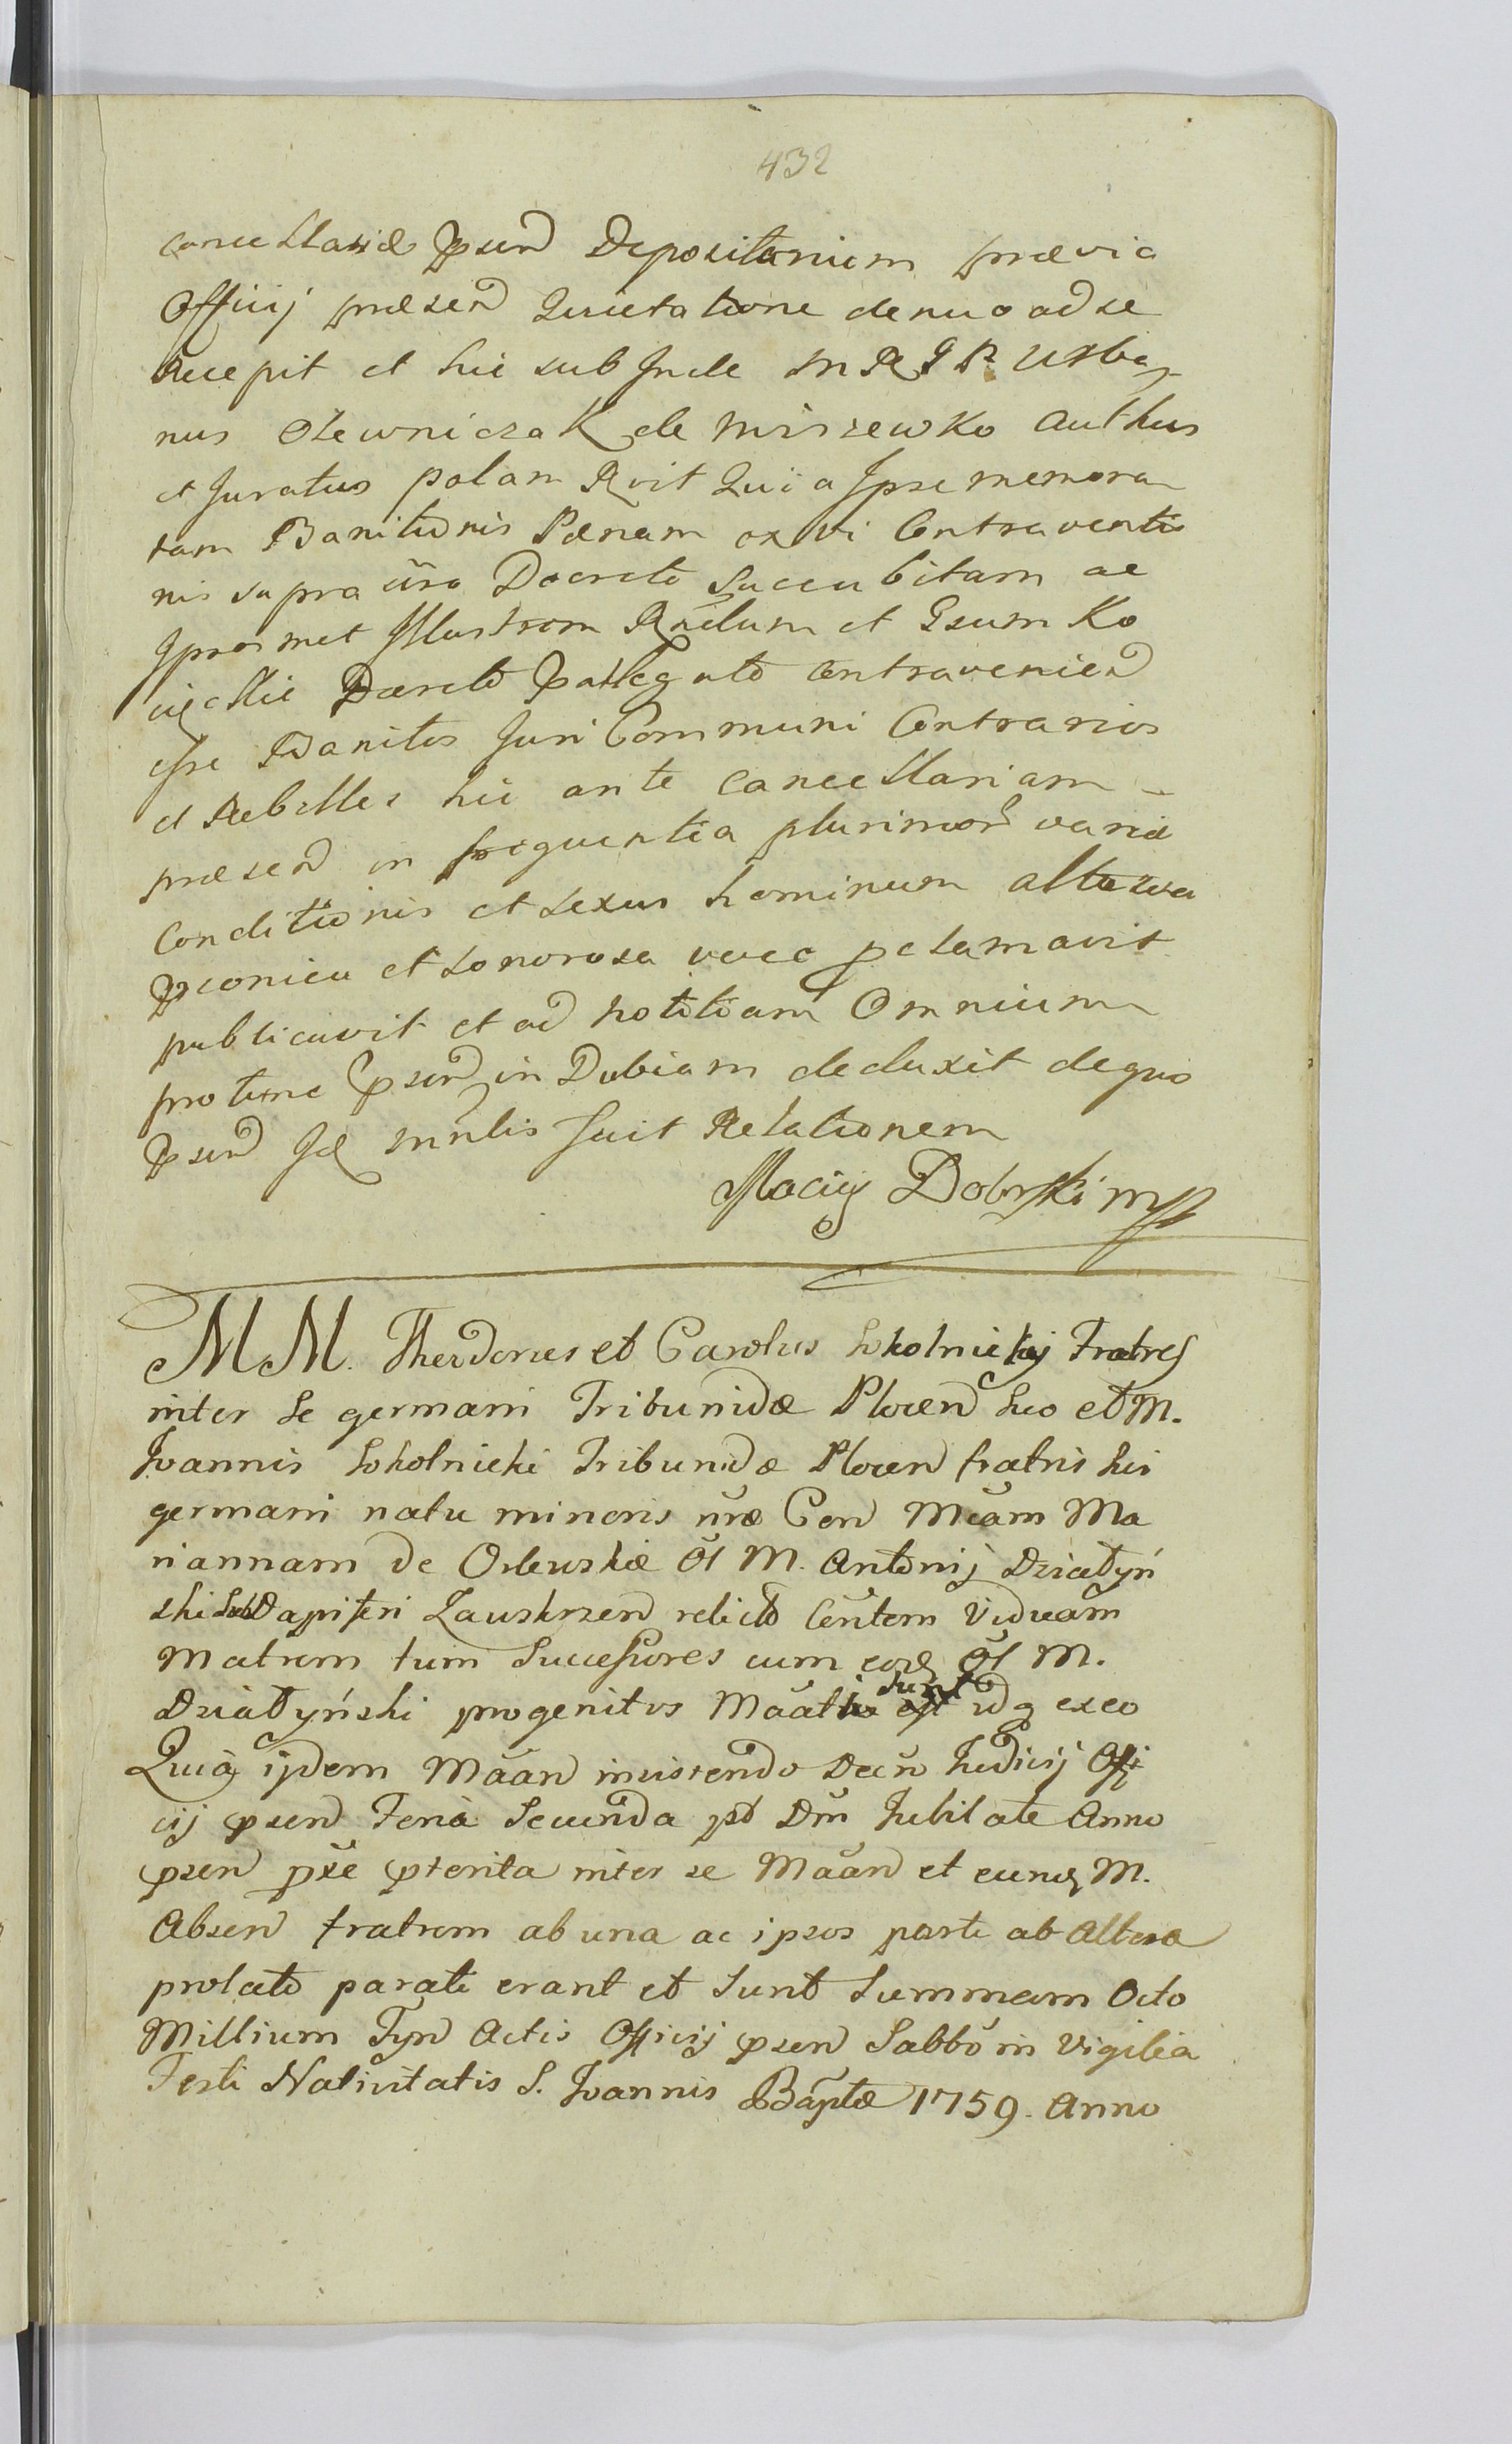 432
cancellariæ pnsen Depositarium prævia
Officij præsen Quietatione denuo ad se
Recepit et hic subinde M R I R Urba
nus Olewniczak de Miszewko Authus
et Juratus palam Rvit Quia Ipse memora
tam Banitionis Pœnam ex vi Contraventio
nis supra Decreto succubitam ac
Ipsosmet Illustrem Rndum et Gsum Ko
Decreto Contravenien
esse Banitos Juri Communi Contrarios
et Rebelles hic ante Cancellariam
præsen in frequentia plurimor variæ
Conditionis et sexus hominum alta voce
pconica et sonorosa voce pclamavit
publicavit et ad notitiam Omnium
protunc psen in Dubiam deduxit de quo
psen Id Mnlis fuit Relationem
Maciej Dobrski mp
MM. Theodorus et Carolus Sokolnickij Fratres
inter se germani Tribunidæ Plocen suo et M.
Joannis Sokolnicki Tribunidæ Plocen fratris sui
germani natu minoris nræ Con Mcam Ma
riannam de Orłewskie Ol M. Antonij Dziatyń
ski SubDapiferi Zauskrzen relicto Centem Viduam
Matrem tum Successores cum eod Ol M.
Dziatyński progenitos Maati sunt idq ex eo
Quia ijdem Maan insistendo Decr Judicij Offi
cij psen Feria Secunda pt Dm Jubilate Anno
psen pxe pterita inter se Maan et eund M.
Absen fratrem ab una ac ipsos parte ab altera
prolato parati erant et sunt Summam Octo
Millium Fyn Actis Officij psen Sabbo in Vigilia
Festi Nativitatis S. Joannis Baptæ 1759. Anno